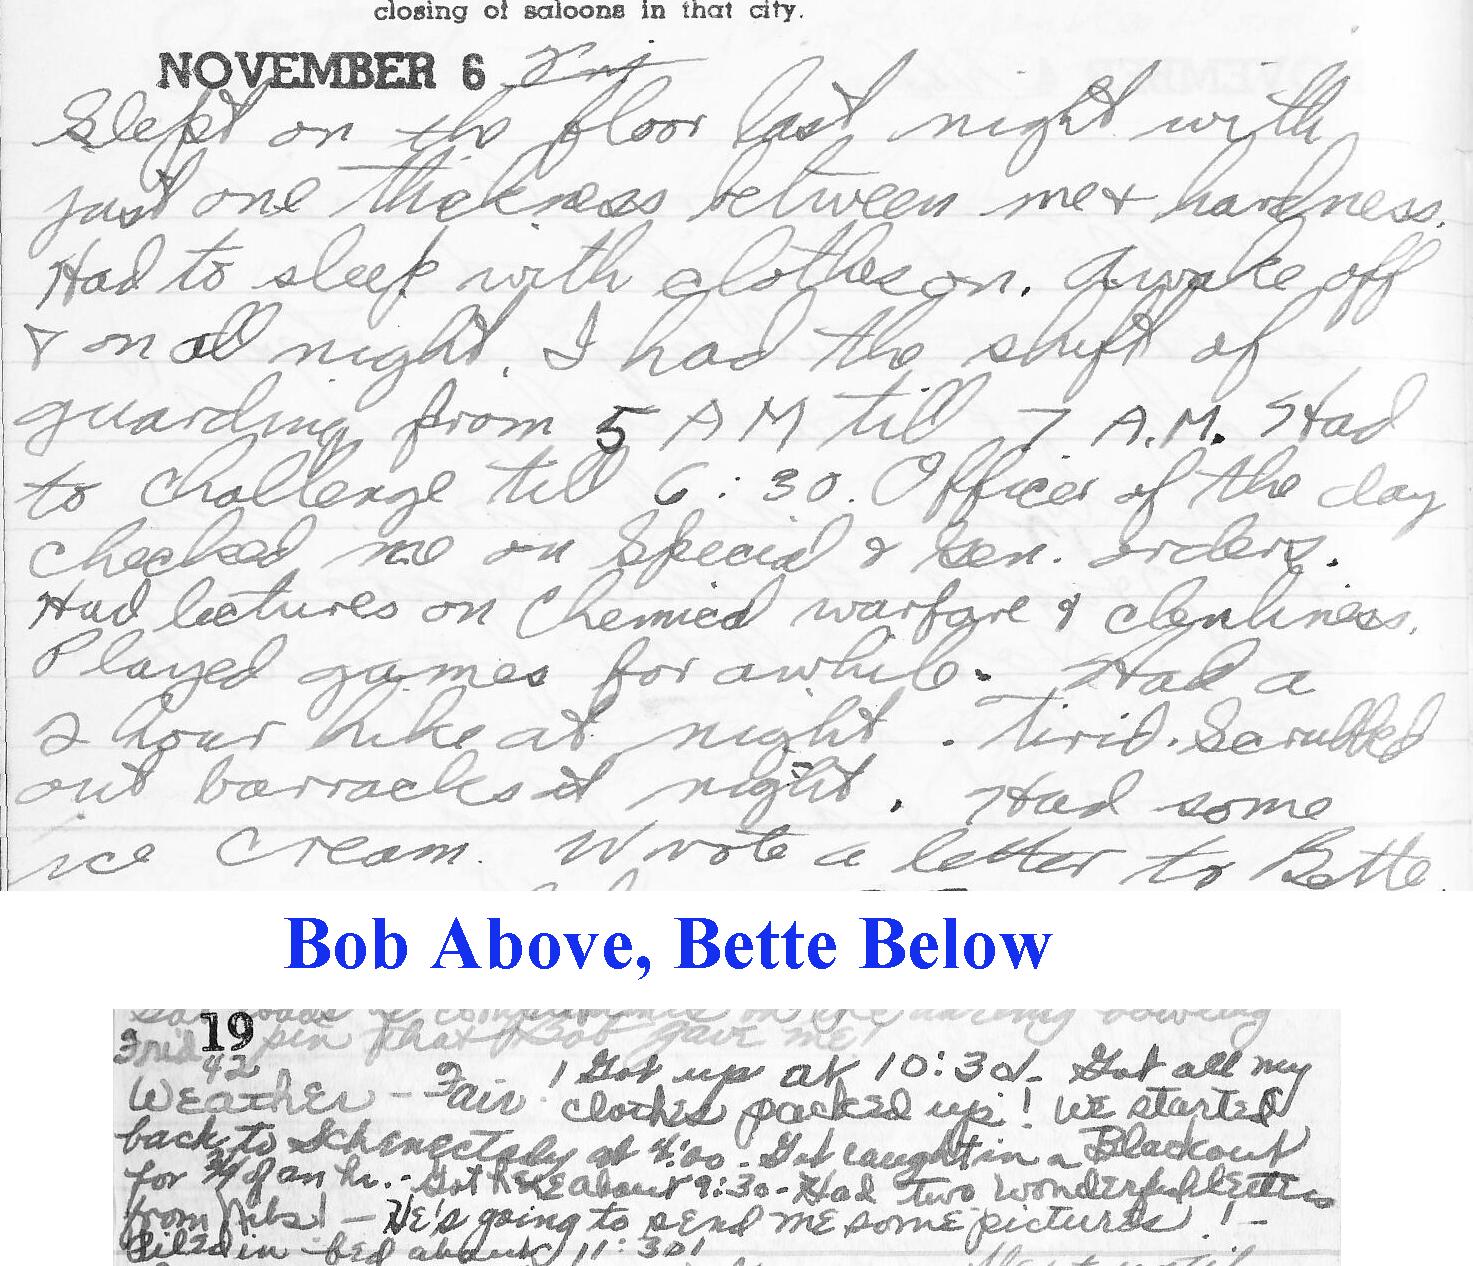 closing of saloons in that city.
NOVEMBER 6 Fri
Slept on the floor last night with
just one thickness between me & hardness.
Had to sleep with clothes on. Awake off
& on all night. I had the shift of
guarding from 5 AM till 7 A.M. Had
to challenge till 6:30. Officer of the day
checked me on Special & Gen. orders.
Had lectures on Chemical warfare & clenliness.
Played games for awhile. Had a
2 hour hike at night. Tirid. Scrubbed
out barracks at night. Had some
ice cream. Wrote a letter to Bette.
Bob Above, Bette Below
19 pin that Bob gave me!
Frid. 42
Weather - Fair! Got up at 10:30. Got all my
clothes packed up! We started
back to Schenectady at 4:00. Got caught in a Blackout
for 3/4 of an hr.. Got here about 9:30 - Had two wonderful letters
from Hibs! - He's going to send me some pictures! -
Piled in bed about 11:30!